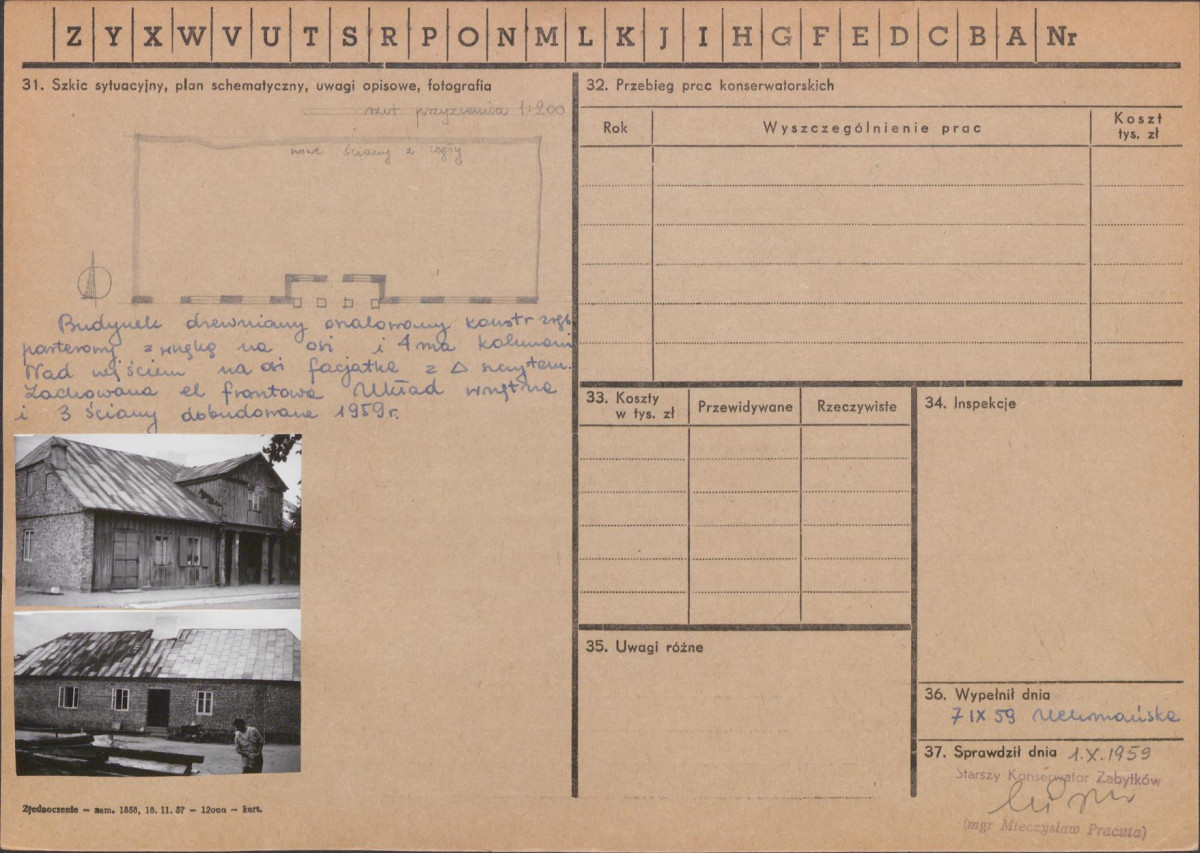 Z Y X W V U T S R P O N M L K J I H G F E D C B A Nr
31. Szkic sytuacyjny, plan schematyczny, uwagi opisowe, fotografia
rzut przyziemia 1:200
nowe ściany z cegły
Budynek drewniany oszalowany konstr zręb.
parterowy z wnęką na osi i 4ma kolumnami
Nad wejściem na osi facjatka z △ szczytem.
Zachowana el frontowa Układ wnętrza
i 3 ściany dobudowane 1959 r.
Zjednoczenie – zam. 1858, 18. 11. 57 – 12000 – kart.
32. Przebieg prac konserwatorskich
Rok Wyszczególnienie prac Koszt tys. zł
33. Koszty w tys. zł Przewidywane Rzeczywiste
34. Inspekcje
35. Uwagi różne
36. Wypełnił dnia
7 IX 59
37. Sprawdził dnia 1.X.1959
Starszy Konserwator Zabytków
(mgr Mieczysław Pracuta)